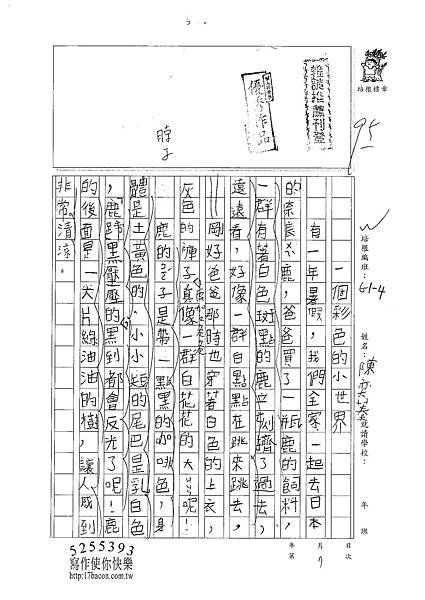 培根標章
95
雜誌推薦刊登
優秀作品
脖子
培根編班：
G1-4
姓名：
陳奕蓁
就讀學校：
年 班
一個彩色的小世界
有一年暑假，我們全家一起去日本
的奈良公鹿，爸爸買了一瓶鹿的飼料，
一群有著白色斑點的鹿立刻擠了過去，
遠遠看，好像一群白點點在跳來跳去，
剛好爸爸那時也穿著白色的上衣，
灰色的褲子真像一群白花花的大 呢！
鹿的 子是帶一點黑的咖啡色，身
體是土黃色的，小小短短的尾巴是乳白色
，鹿蹄黑壓壓的黑到都會反光了呢！鹿
的後面是一大片綠油油的樹，讓人感到
非常清涼。
年 月 日
第 次
5255393
寫作使你快樂
http://17bacon.com.tw